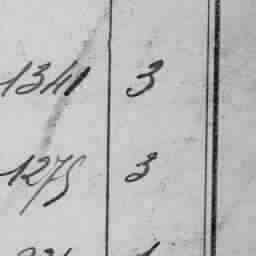 1341 3
1275 3